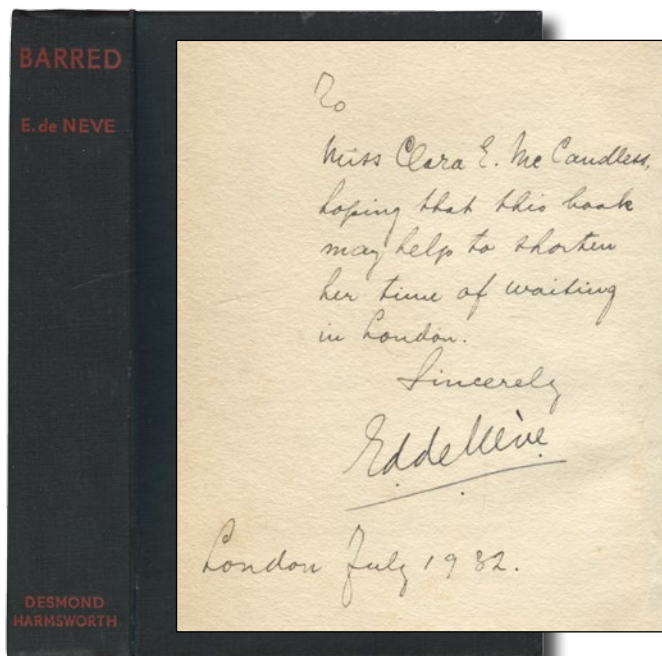 BARRED
E. de NEVE
DESMOND
HARMSWORTH
To
Miss Clara E. McCandless,
hoping that this book
may help to shorten
her time of waiting
in London.
Sincerely
Ed de Nève
London July 1932.